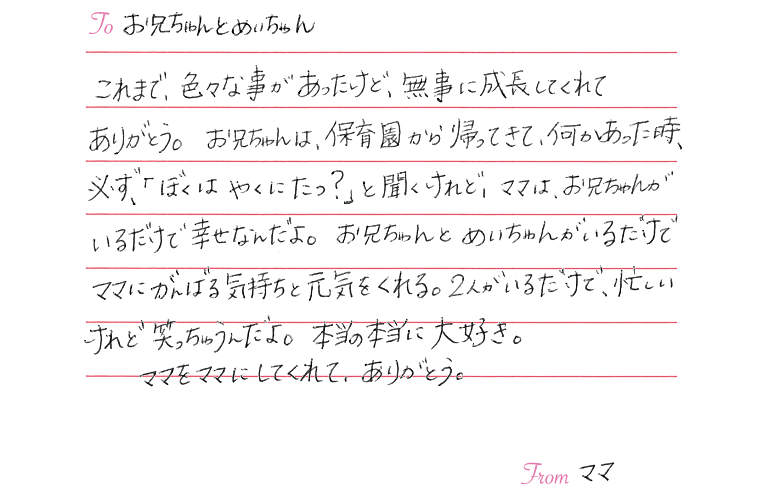 To お兄ちゃんとめいちゃん
これまで、色々な事があったけど、無事に成長してくれて
ありがとう。お兄ちゃんは、保育園から帰ってきて、何かあった時、
必ず、「ぼくは やくにたつ?」と聞くけれど、ママは、お兄ちゃんが
いるだけで幸せなんだよ。お兄ちゃんとめいちゃんがいるだけで
ママにがんばる気持ちと元気をくれる。2人がいるだけで、忙しい
けれど笑っちゃうんだよ。本当の本当に大好き。
ママをママにしてくれて、ありがとう。
From ママ